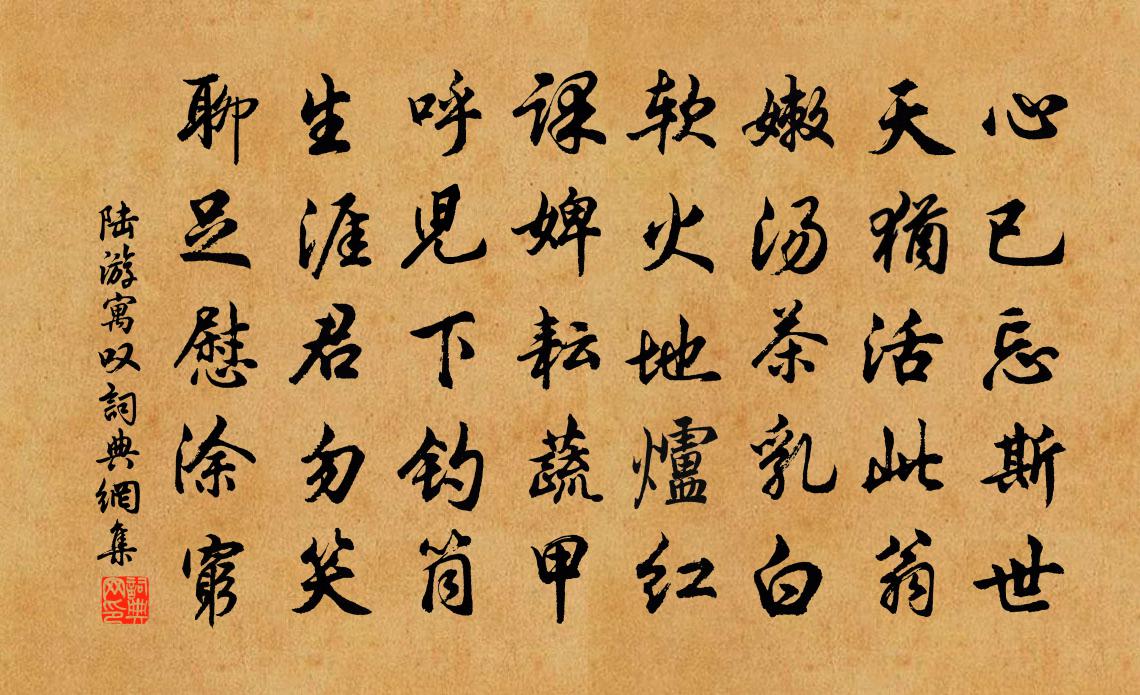 心已忘斯世
天猶活此翁
嫩汤茶乳白
软火地爐红
课婢耘蔬甲
呼児下钓筒
生涯君勿笑
聊足慰涂窮
陆游寓叹詞典網集
詞典网印